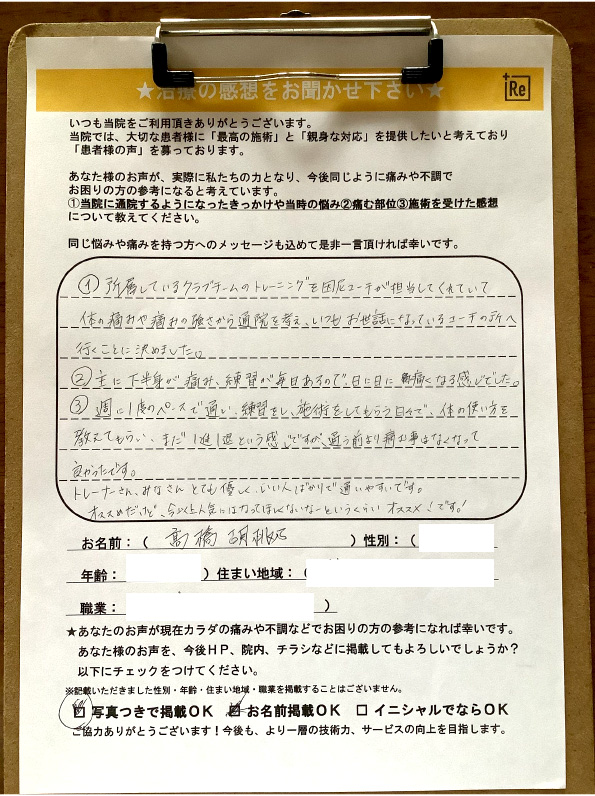 ★治療の感想をお聞かせ下さい★
+Re
いつも当院をご利用頂きありがとうございます。
当院では、大切な患者様に「最高の施術」と「親身な対応」を提供したいと考えており
「患者様の声」を募っております。
あなた様のお声が、実際に私たちの力となり、今後同じように痛みや不調で
お困りの方の参考になると考えています。
①当院に通院するようになったきっかけや当時の悩み②痛む部位③施術を受けた感想
について教えてください。
同じ悩みや痛みを持つ方へのメッセージも込めて是非一言頂ければ幸いです。
① 所属しているクラブチームのトレーニングを田尻コーチが担当してくれていて
体の痛みや痛みの強さから通院を考え、いつもお世話になっているコーチの所へ
行くことに決めました。
② 主に下半身が痛み、練習が毎日あるので、日に日に痛くなる感じでした。
③ 週に1度のペースで通い、練習をし、施術をしてもらう日々で、体の使い方を
教えてもらい、まだ1進1退という感じですが、通う前より痛む事はなくなって
良かったです。
トレーナーさん、みなさんとても優しく、いい人ばかりで通いやすいです。
オススメだけど、今以上人気にはなってほしくないなーというくらいオススメ!です!
お名前：（ 高橋 ）性別：（
年齢： ）住まい地域：（
職業： ）
★あなたのお声が現在カラダの痛みや不調などでお困りの方の参考になれば幸いです。
あなた様のお声を、今後ＨＰ、院内、チラシなどに掲載してもよろしいでしょうか？
以下にチェックをつけてください。
※記載いただきました性別・年齢・住まい地域・職業を掲載することはございません。
☑ 写真つきで掲載ＯＫ ☑ お名前掲載ＯＫ □ イニシャルでならＯＫ
ご協力ありがとうございます！今後も、より一層の技術力、サービスの向上を目指します。